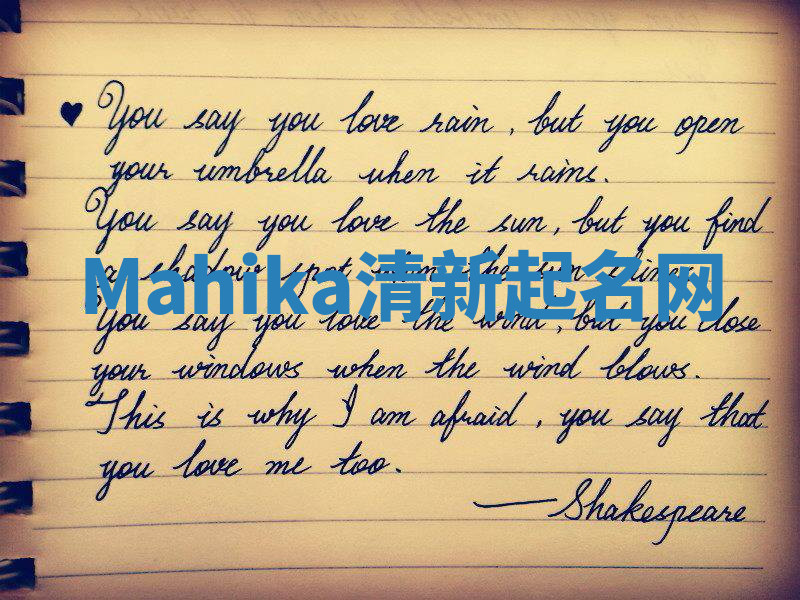 ♥ You say you love rain, but you open
your umbrella when it rains.
You say you love the sun, but you find
a shadow spot when the sun shines.
Mahika清新起名网
You say you love the wind, but you close
your windows when the wind blows.
This is why I am afraid, you say that
you love me too.
—Shakespeare